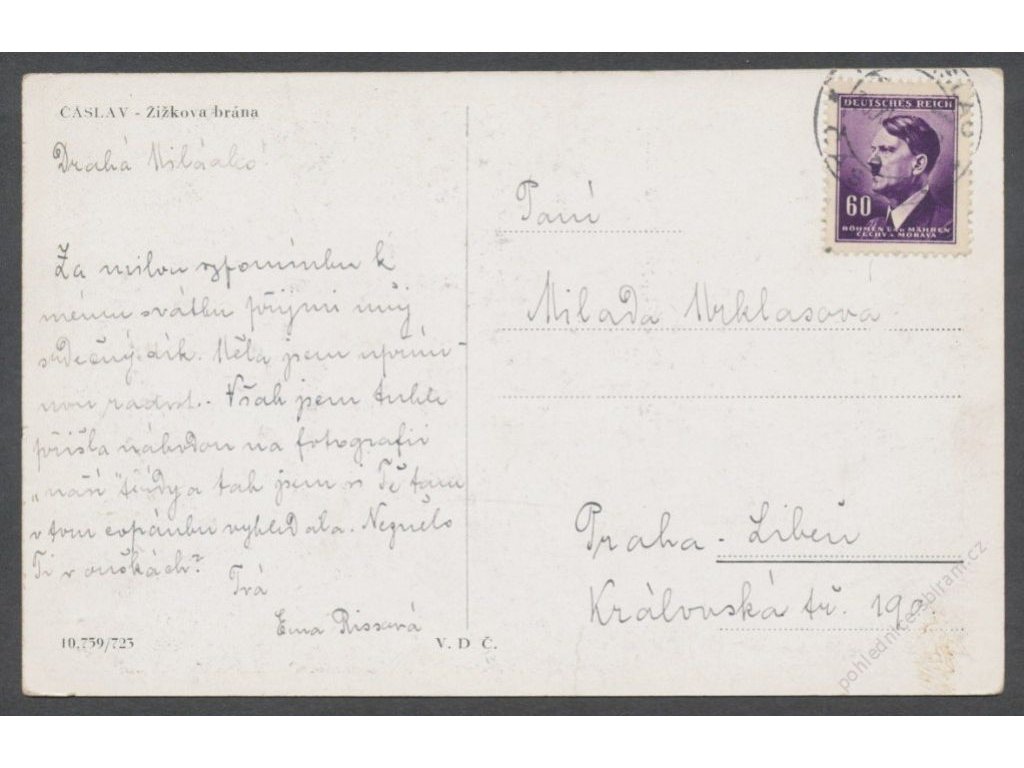 ČÁSLAV - Žižkova brána
Drahá
Za milou vzpomínku k
mému svátku přijmi můj
srdečný dík. Měla jsem upřím-
nou radost. Však jsem tuhle
přišla náhodou na fotografii
„naší" třídy a tak jsem si Tě tam
v tom copánku vyhledala. Neznělo
Ti v ouškách?
Tvá
Ema Rissová
10,759/723
V. D Č.
DEUTSCHES REICH
60
BÖHMEN UND MÄHREN
ČECHY A MORAVA
Paní
Milada Mrklasová
Praha - Libeň
Královská tř.
pohlednice-sbiram.cz